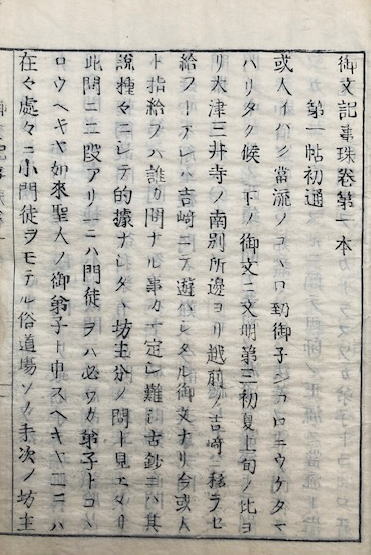 御文記事珠卷第一本
第一帖初通
或人イハク當流ノコヽロ到御子シコロニウケタマ
ハリタク候ト下ノ御文ニ文明第三初夏上旬ノ比ヨ
リ大津三井寺ノ南別所邊ヨリ越前ノ吉崎ニ移ラセ
給フトアレハ吉崎ニテ遊ハシタル御文ナリ今或人
ト指給フハ誰カ問ナル事カ一定シ難シ古鈔ニハ其
說種々ニシテ的據ナシタヽ坊主分ノ問ト見エタリ
此問ニ二段アリ一ニハ門徒ヲハ必ワカ弟子トコヽ
ロウヘキヤ如來聖人ノ御弟子ト申スヘキヤ二ニハ
在々處々ニ小門徒ヲモテル俗道場ソノ手次ノ坊主